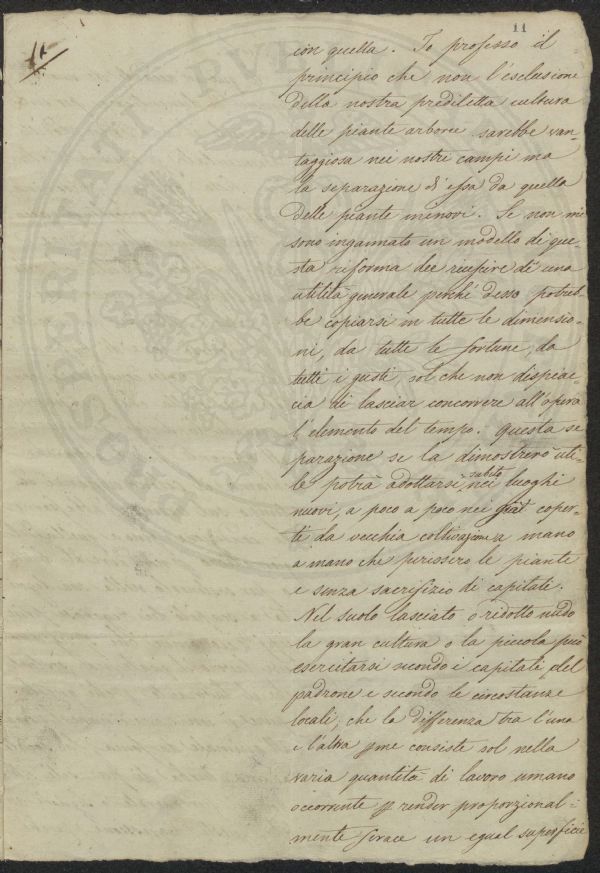 11
con quella. Io professo il
principio che non l'esclusione
della nostra prediletta cultura
delle piante arboree sarebbe van-
taggiosa nei nostri campi ma
la separazione d'essa da quella
delle piante minori. Se non mi
sono ingannato un modello di que-
sta riforma dee riescire di una
utilità generale perchè desso potreb-
be copiarsi in tutte le dimensio-
ni, da tutte le fortune, da
tutti i gusti, sol che non dispiac-
cia di lasciar concorrere all'opera
l'elemento del tempo. Questa se
parazione se la dimostrerò uti-
le potrà adottarsi subito nei luoghi
nuovi, a poco a poco nei già coper-
ti da vecchia coltivazione a mano
a mano che perissero le piante
e senza sacrifizio di capitali.
Nel suolo lasciato o ridotto nudo
la gran cultura o la piccola può
esercitarsi secondo i capitali del
padrone e secondo le circostanze
locali, che la differenza tra l'una
e l'altra p me consiste sol nella
varia quantità di lavoro umano
occorrente p render proporzional-
mente ferace un egual superficie
POSTERITATI